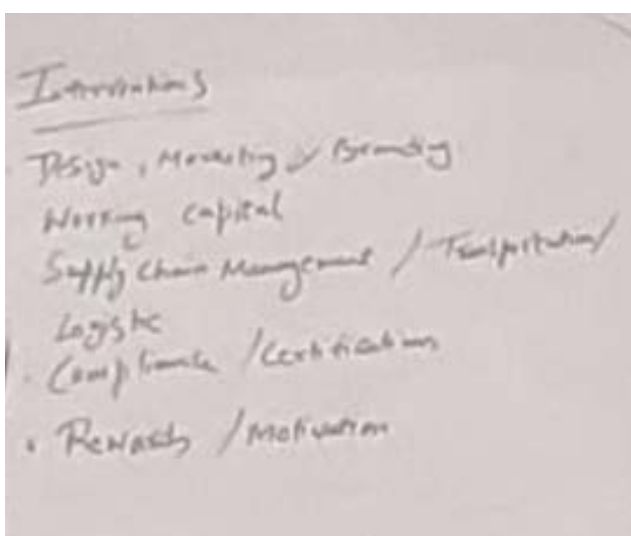 Interventions
Design, Marketing / Branding
Working capital
Supply Chain Management / Transportation/
Logistic
• Compliance / Certification
• Rewards / Motivation